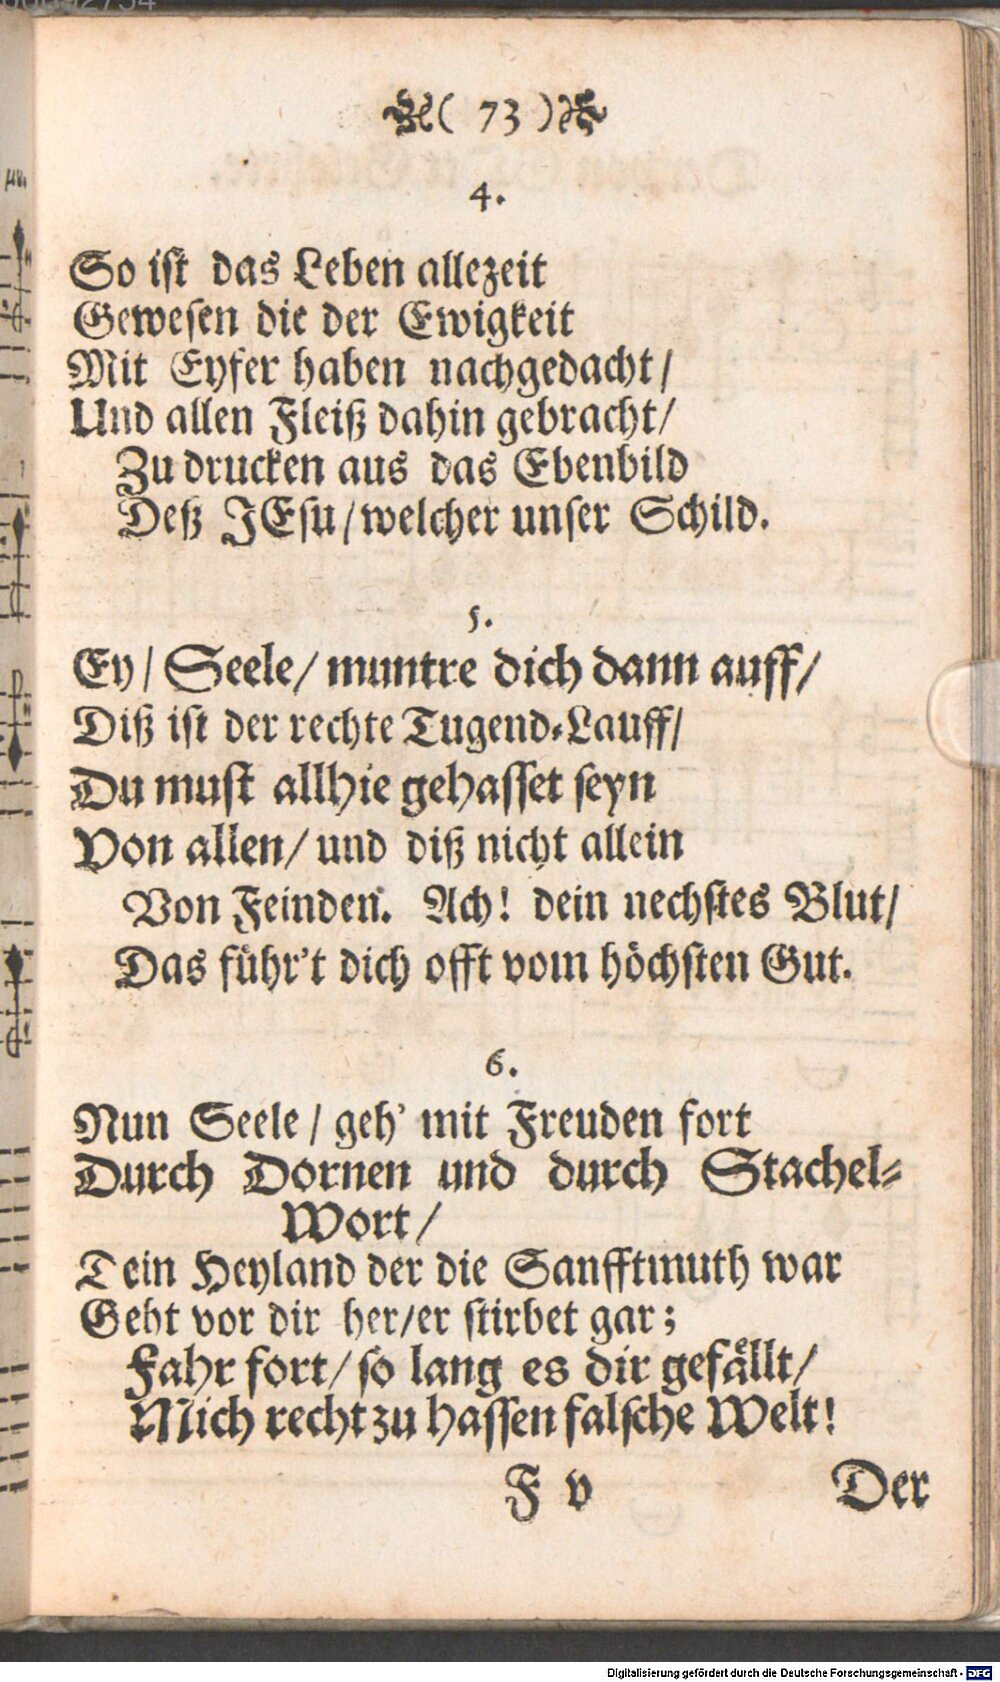 ( 73 )
4.
So ist das Leben allezeit
Gewesen die der Ewigkeit
Mit Eyfer haben nachgedacht/
Und allen Fleiß dahin gebracht/
Zu drucken aus das Ebenbild
Deß JEsu/welcher unser Schild.
5.
Ey/ Seele/ muntre dich dann auff/
Diß ist der rechte Tugend-Lauff/
Du must allhie gehasset seyn
Von allen/ und diß nicht allein
Von Feinden. Ach! dein nechstes Blut/
Das führ't dich offt vom höchsten Gut.
6.
Nun Seele/ geh' mit Freuden fort
Durch Dornen und durch Stachel-
Wort/
Dein Heyland der die Sanfftmuth war
Geht vor dir her/er stirbet gar;
Fahr fort/ so lang es dir gefällt/
Mich recht zu hassen falsche Welt!
F v Der
Digitalisierung gefördert durch die Deutsche Forschungsgemeinschaft - DFG